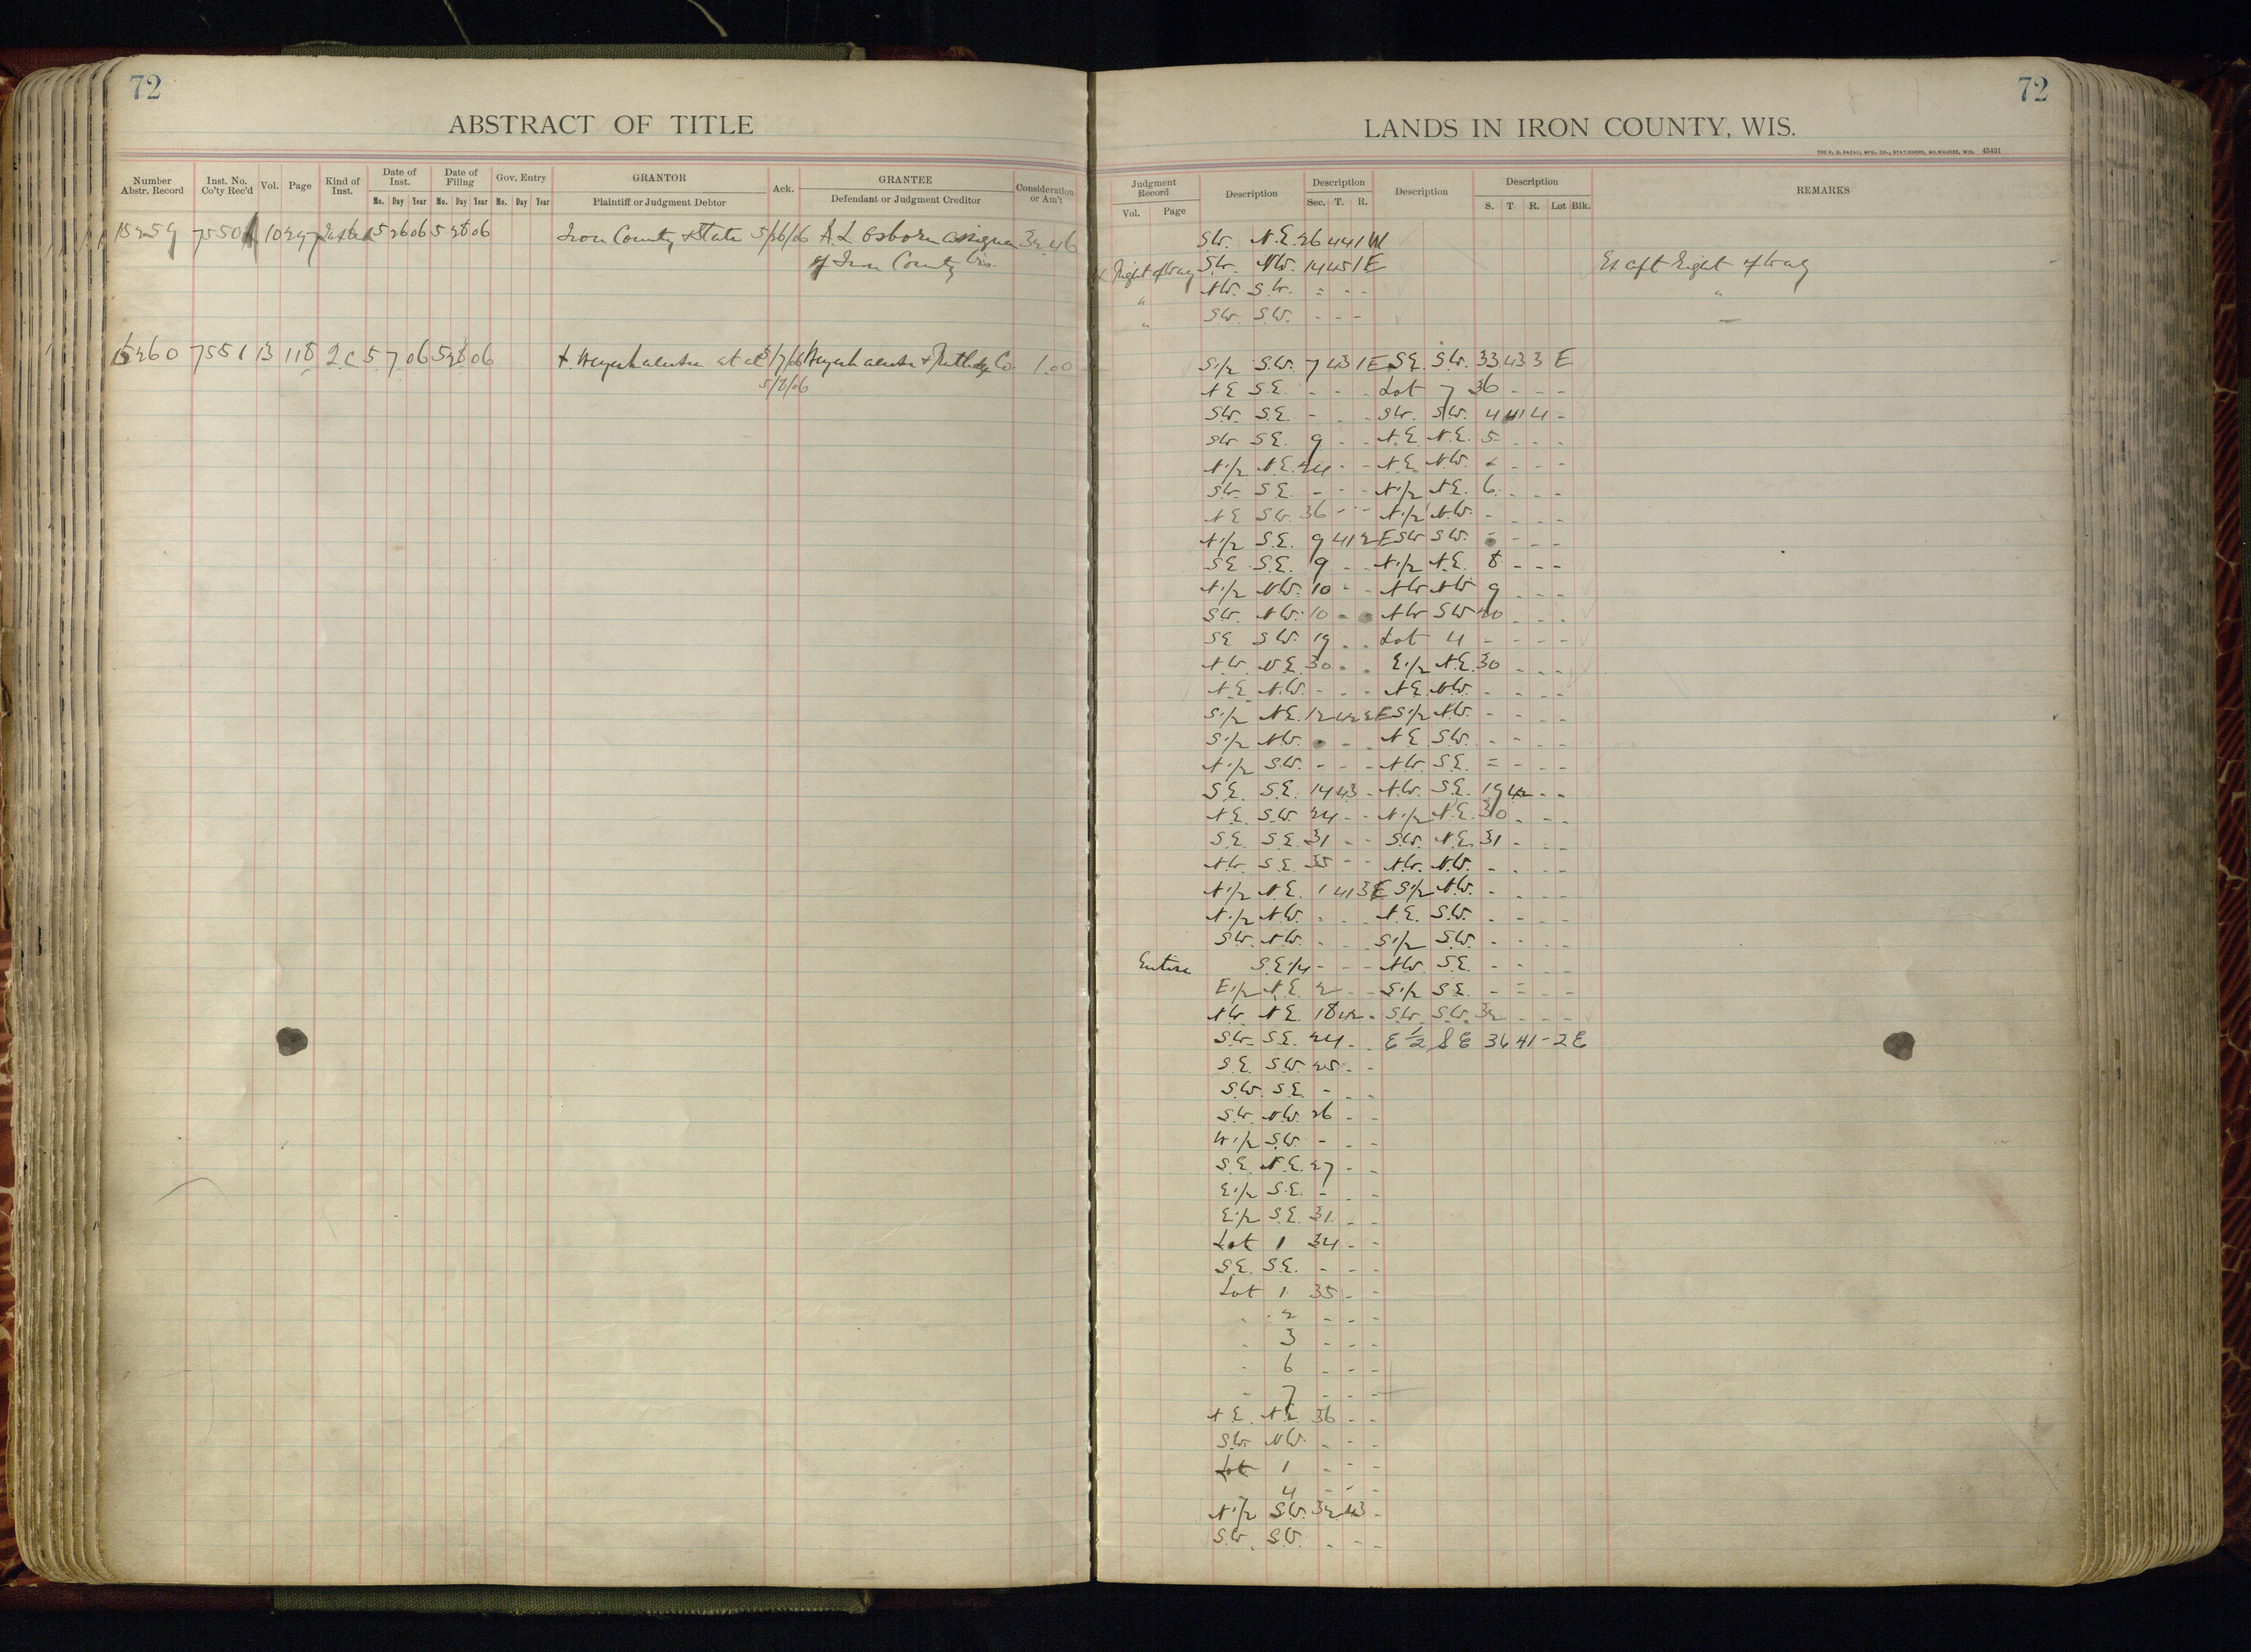 72
ABSTRACT OF TITLE
Number Abstr. Record Inst. No. Co'ty Rec'd Vol. Page Kind of Inst. Date of Inst. Mo. Day Year Date of Filing Mo. Day Year Gov. Entry Mo. Day Year GRANTOR Plaintiff or Judgment Debtor Ack. GRANTEE Defendant or Judgment Creditor Consideration or Am't
15259 7550 10 297 5 26 06 5 28 06 Iron County & State 5/26/06 A. L. Osborn assignee 32.46
of Iron County Wis.
15260 7551 13 118 2.C 5 7 06 5 28 06 F. Weyerhaeuser et al 5/7/06 Weyerhaeuser & Rutledge Co. 1.00
5/8/06
72
LANDS IN IRON COUNTY, WIS.
45431
Judgment Record Vol. Page Description Description Sec. T. R. Description Description S. T. R. Lot Blk. REMARKS
SW. N.E. 26 44 1 W
Right of Way SW. NW. 14 45 1 E Ex of Right of Way
" NW. S.W. = - - "
" SW. S.W. - - -
S1/2 S.W. 7 43 1 E S.E. S.W. 33 43 3 E
N E S.E. - - - Lot 7 36 - - -
SW. S.E. - - - SW. SW. 4 41 4 -
SW S.E. 9 - - N.E. N.E. 5 - - -
N1/2 N.E. 24 - - N.E. N.W. - - -
SW S.E. - - - N1/2 N.E. 6 - - -
N E SW. 36 - - N1/2 N.W. - - - -
N1/2 S.E. 9 41 2 E SW SW. - - -
S E S.E. 9 - - N1/2 N.E. 8 - - -
N1/2 NW. 10 - - NW NW 9 - - -
SW. NW. 10 - - NW SW 20 - - -
S E SW. 19 - - Lot 4 - - - -
NW. N.E. 30 - - E1/2 N.E. 30 - - -
N E N.W. - - - N.E. N.W. - - - -
S1/2 N.E. 12 42 2 E S1/2 N.W. - - - -
S1/2 NW. - - N E S.W. - - - -
N1/2 S.W. - - - NW. S.E. = - - -
S.E. S.E. 14 43 - NW. S.E. 19 42 - -
N E. S.W. 24 - - N1/2 N.E. 30 - - -
S.E. S.E. 31 - - S.W. N.E. 31 - - -
NW. S.E. 35 - - NW. N.W. - - - -
N1/2 N.E. 1 41 3 E S1/2 N.W. - - - -
N1/2 N.W. - - - N.E. S.W. - - - -
SW. N.W. - - - S1/2 S.W. - - - -
Entire S.E.1/4 - - - NW. S.E. - - - -
E1/2 N.E. 2 - - S1/2 S.E. - = - -
NW. N E. 18 42 - S.W. S.W. 32 - - -
SW. S.E. 24 - - E 1/2 S E 36 41 - 2 E
S.E. S.W. 25 - -
S.W. S.E. - - -
S.W. N.W. 26 - -
W1/2 S.W. - - -
S.E. N.E. 27 - -
E1/2 S.E. - - -
E1/2 S.E. 31 - -
Lot 1 34 - -
S.E. S.E. - - -
Lot 1 35 - -
- 2 - - -
- 3 - - -
- 6 - - -
- 7 - - -
N E. N.E. 36 - -
SW. NW. - - -
Lot 1 - - -
- 4 - - -
N1/2 S.W. 32 43 -
S.W. S.W. - - -